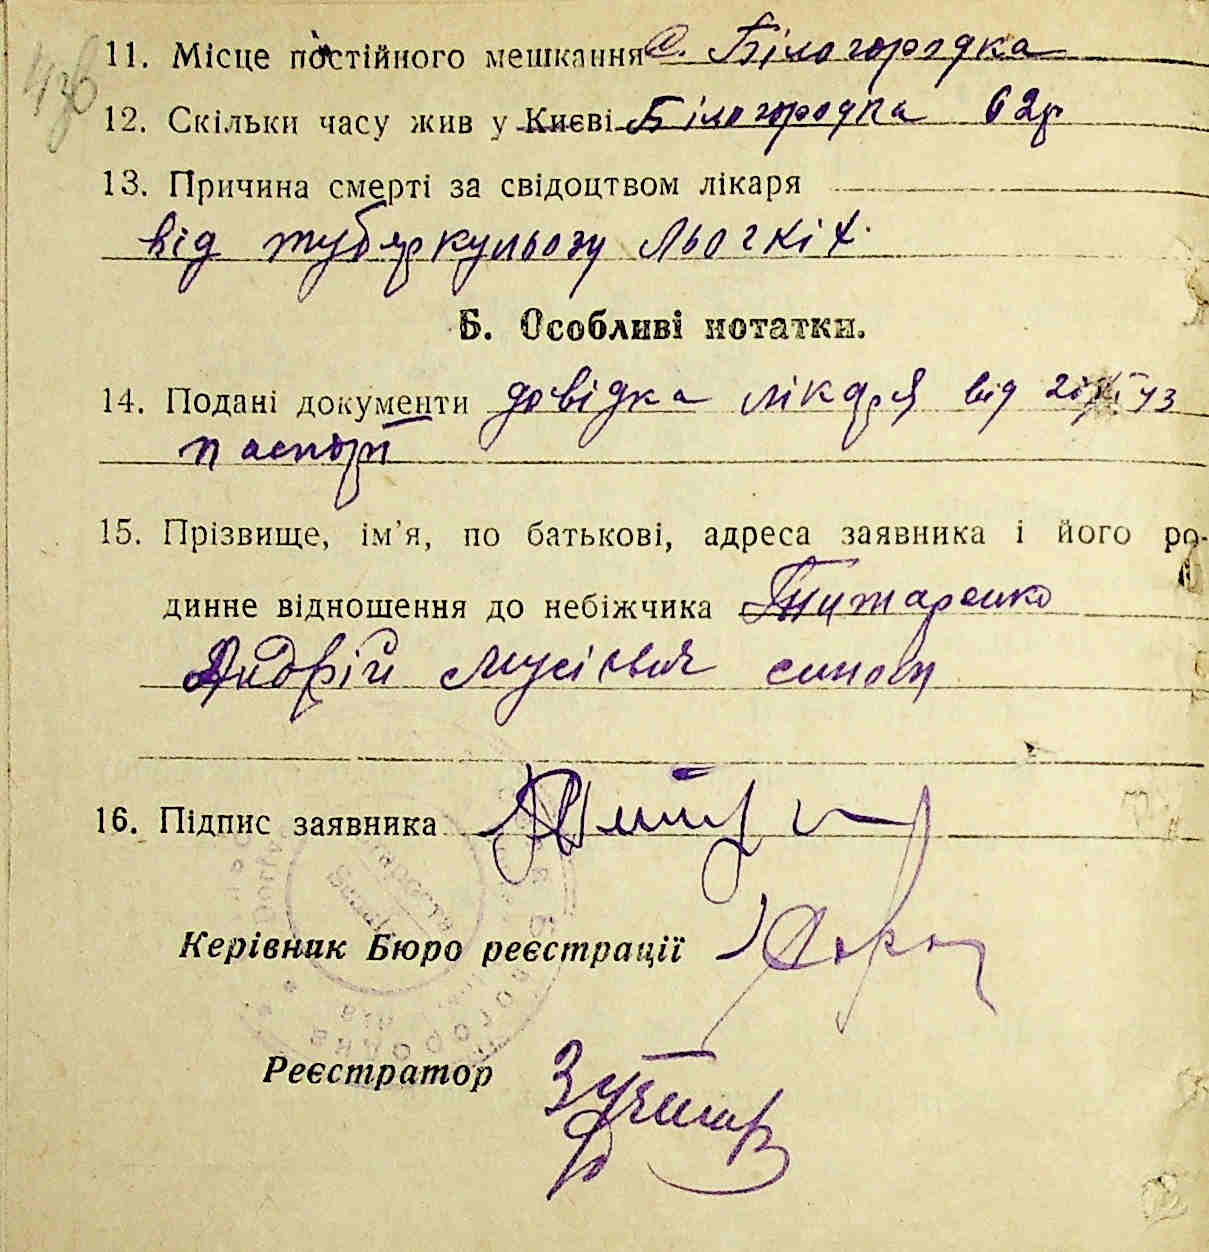 11. Місце постійного мешкання с. Білогородка
12. Скільки часу жив у Києві Білогородка 62р
13. Причина смерті за свідоцтвом лікаря
від туберкульозу льогкіх
Б. Особливі нотатки.
14. Подані документи довідка лікаря від 43
паспорт
15. Прізвище, ім'я, по батькові, адреса заявника і його ро-
динне відношення до небіжчика Титаренко
Андрій Мусієвич
16. Підпис заявника
Керівник Бюро реєстрації
Реєстратор